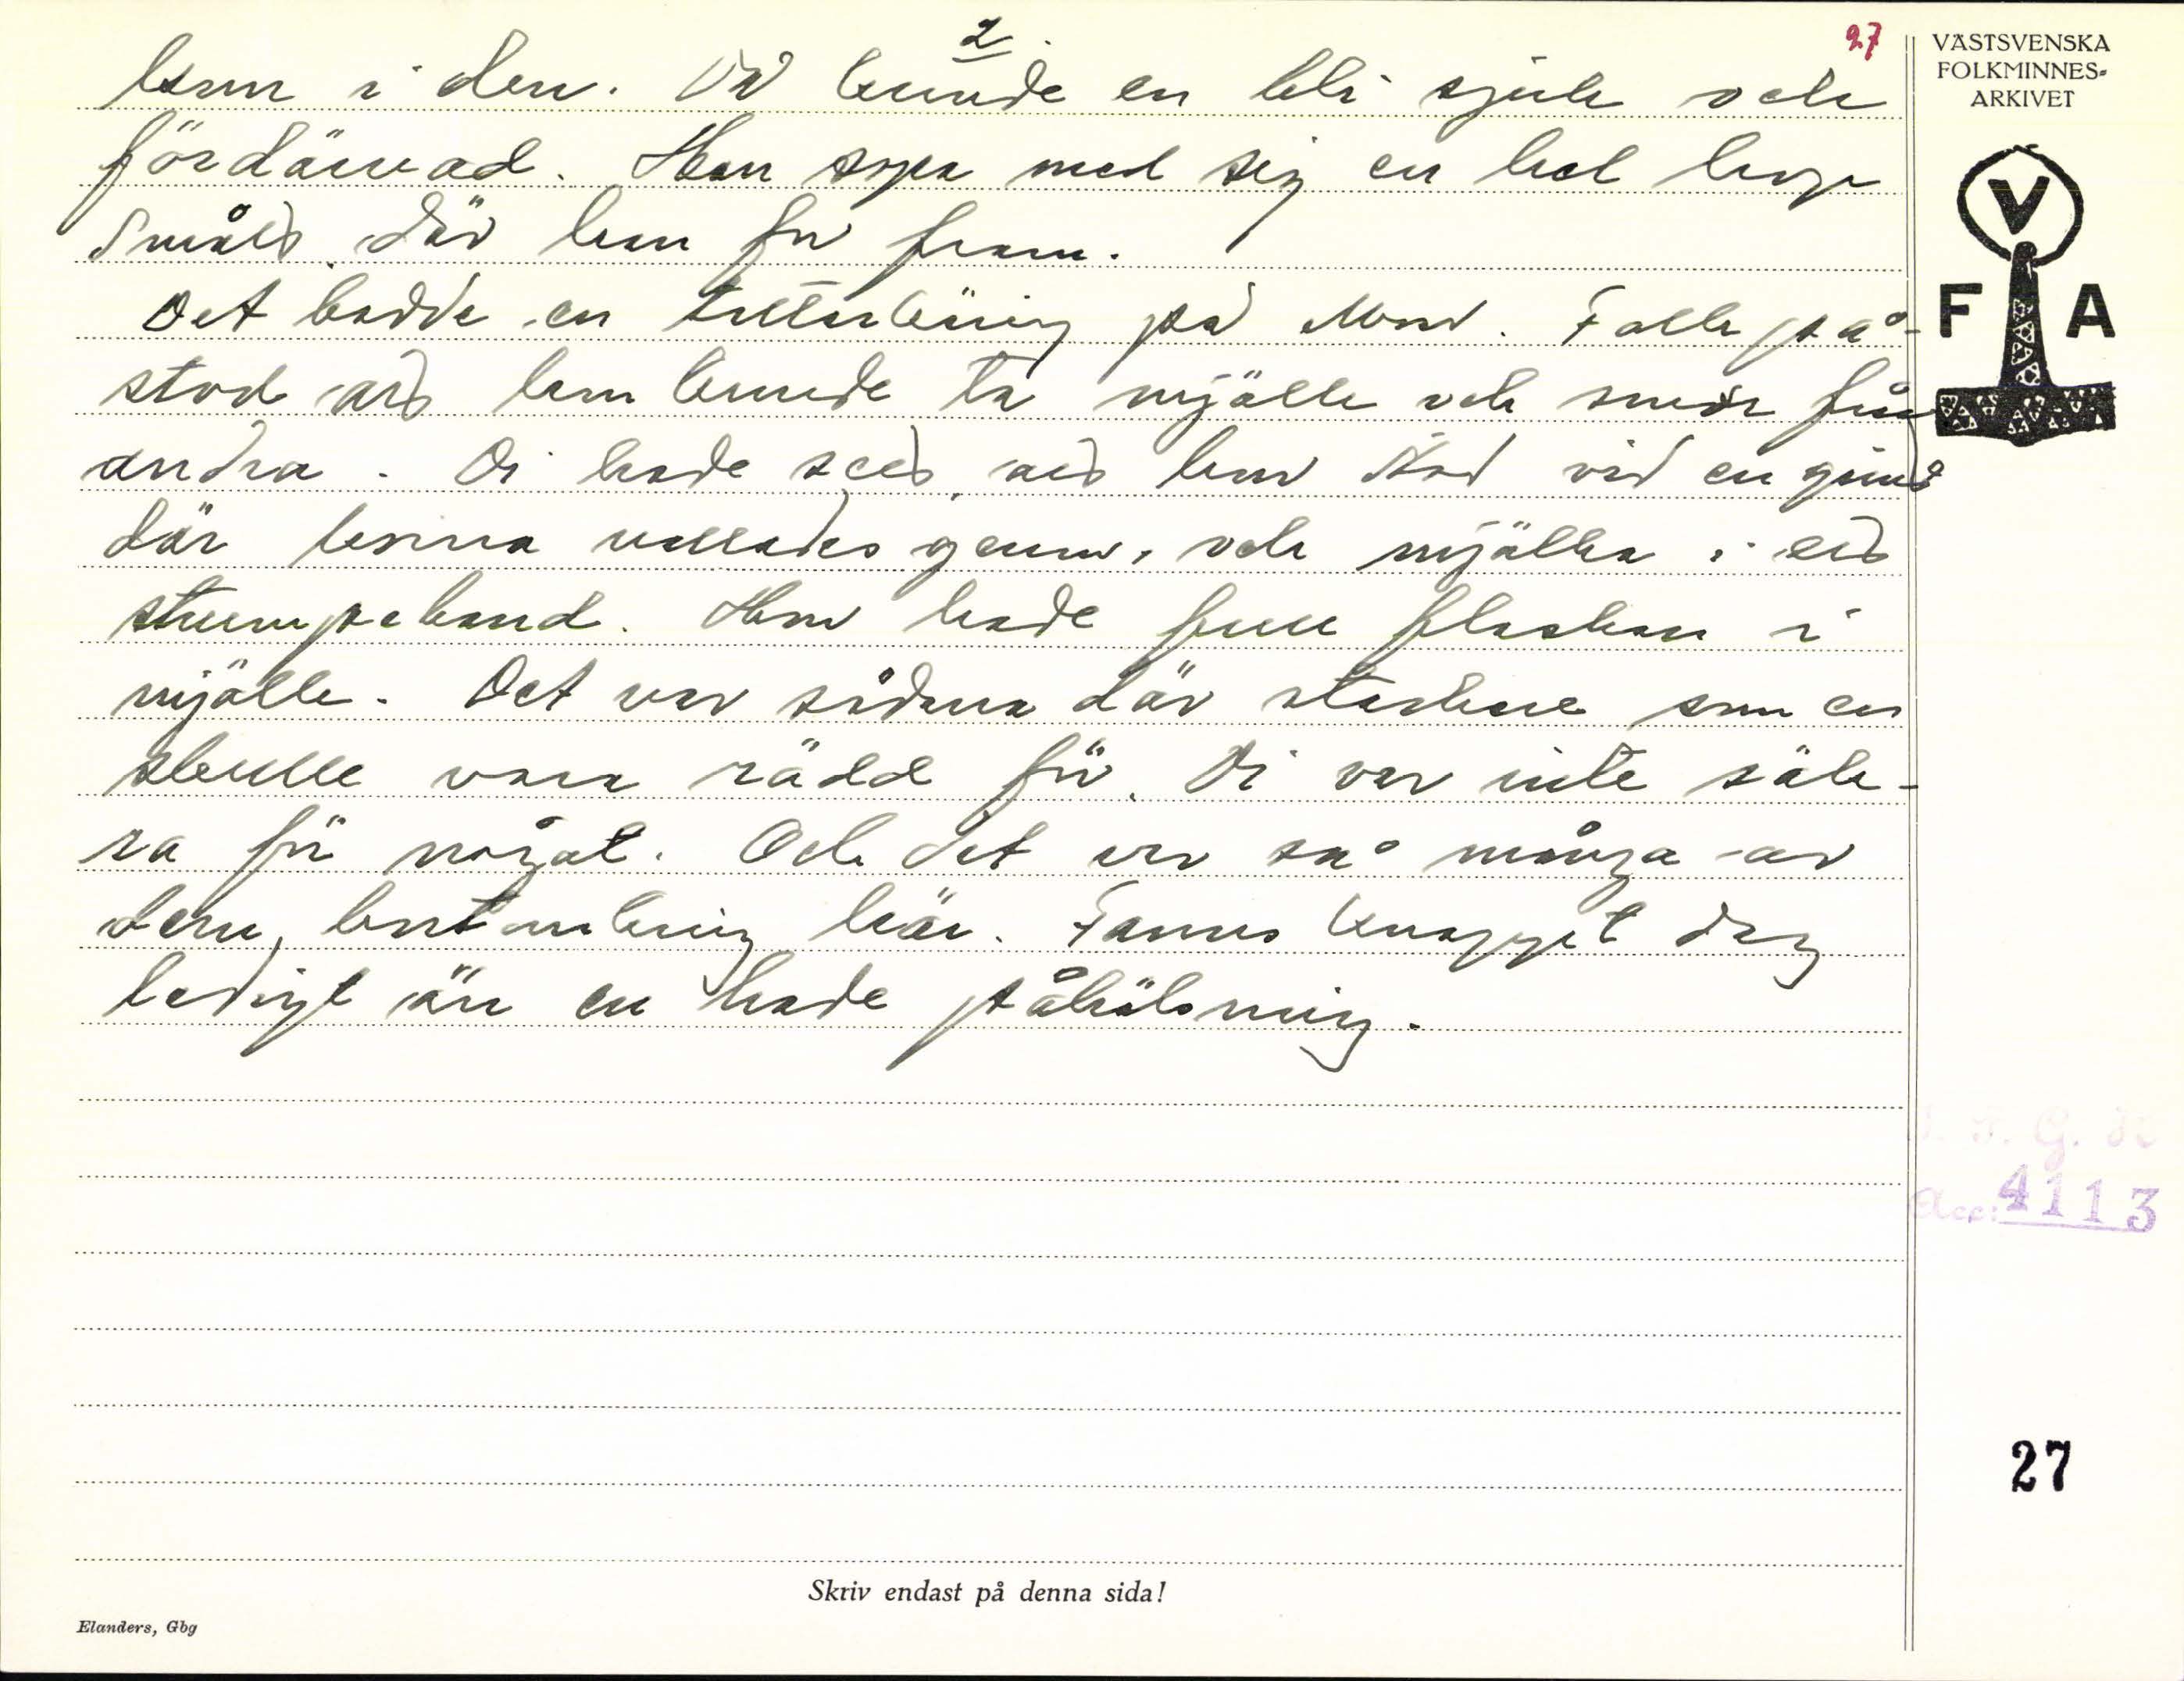 2
27
VÄSTSVENSKA
FOLKMINNES-
ARKIVET
kom i den. Då kunde en bli sjuk och
fördärvad. Han sopa med sig en hel hop
smått där han for fram.
Det bodde en tattarkäring på Mon. Folk på-
stod att hon kunde ta mjölk och smör från
andra. Di hade sett att hon stod vid en grind
där korna vallades genom, och mjölka i ett
strumpeband. Hon hade full flaskan i
mjölk. Det var sådana där stackare som en
skulle vara rädd för. Di var inte säk-
ra för något. Och det var så många av
dem, kring här. Fanns knappt dag
ledigt än en hade påhälsning.
V
F A
Acc: 4113
27
Skriv endast på denna sida!
Elanders, Gbg